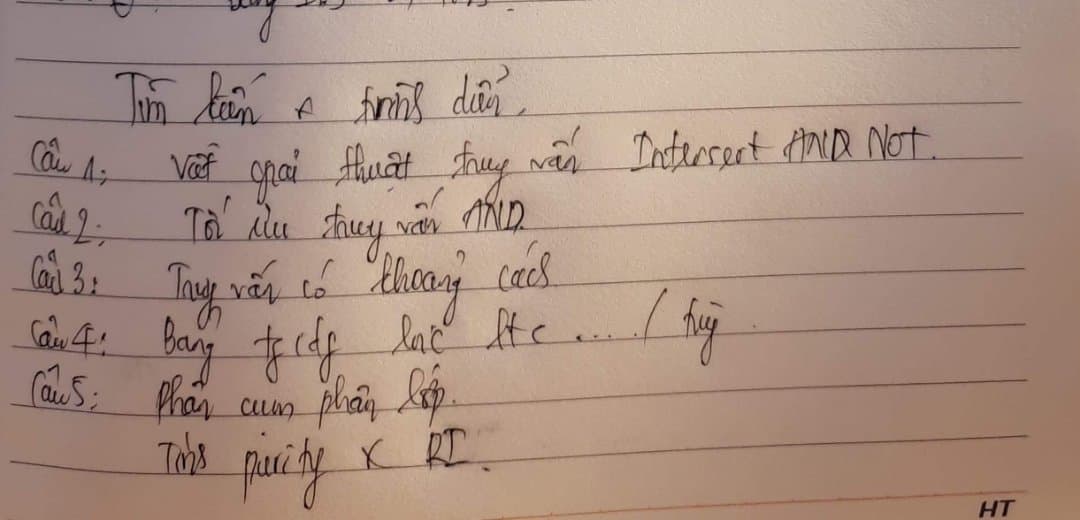 Tìm kiếm & trình diễn.
Câu 1: Viết giải thuật truy vấn Intersect AND NOT.
Câu 2: Tối ưu truy vấn AND.
Câu 3: Truy vấn có khoảng cách
Câu 4: Bảng tf idf lnc ltc .... /
Câu 5: Phân cụm phân lớp.
Tính purity & RI.
HT